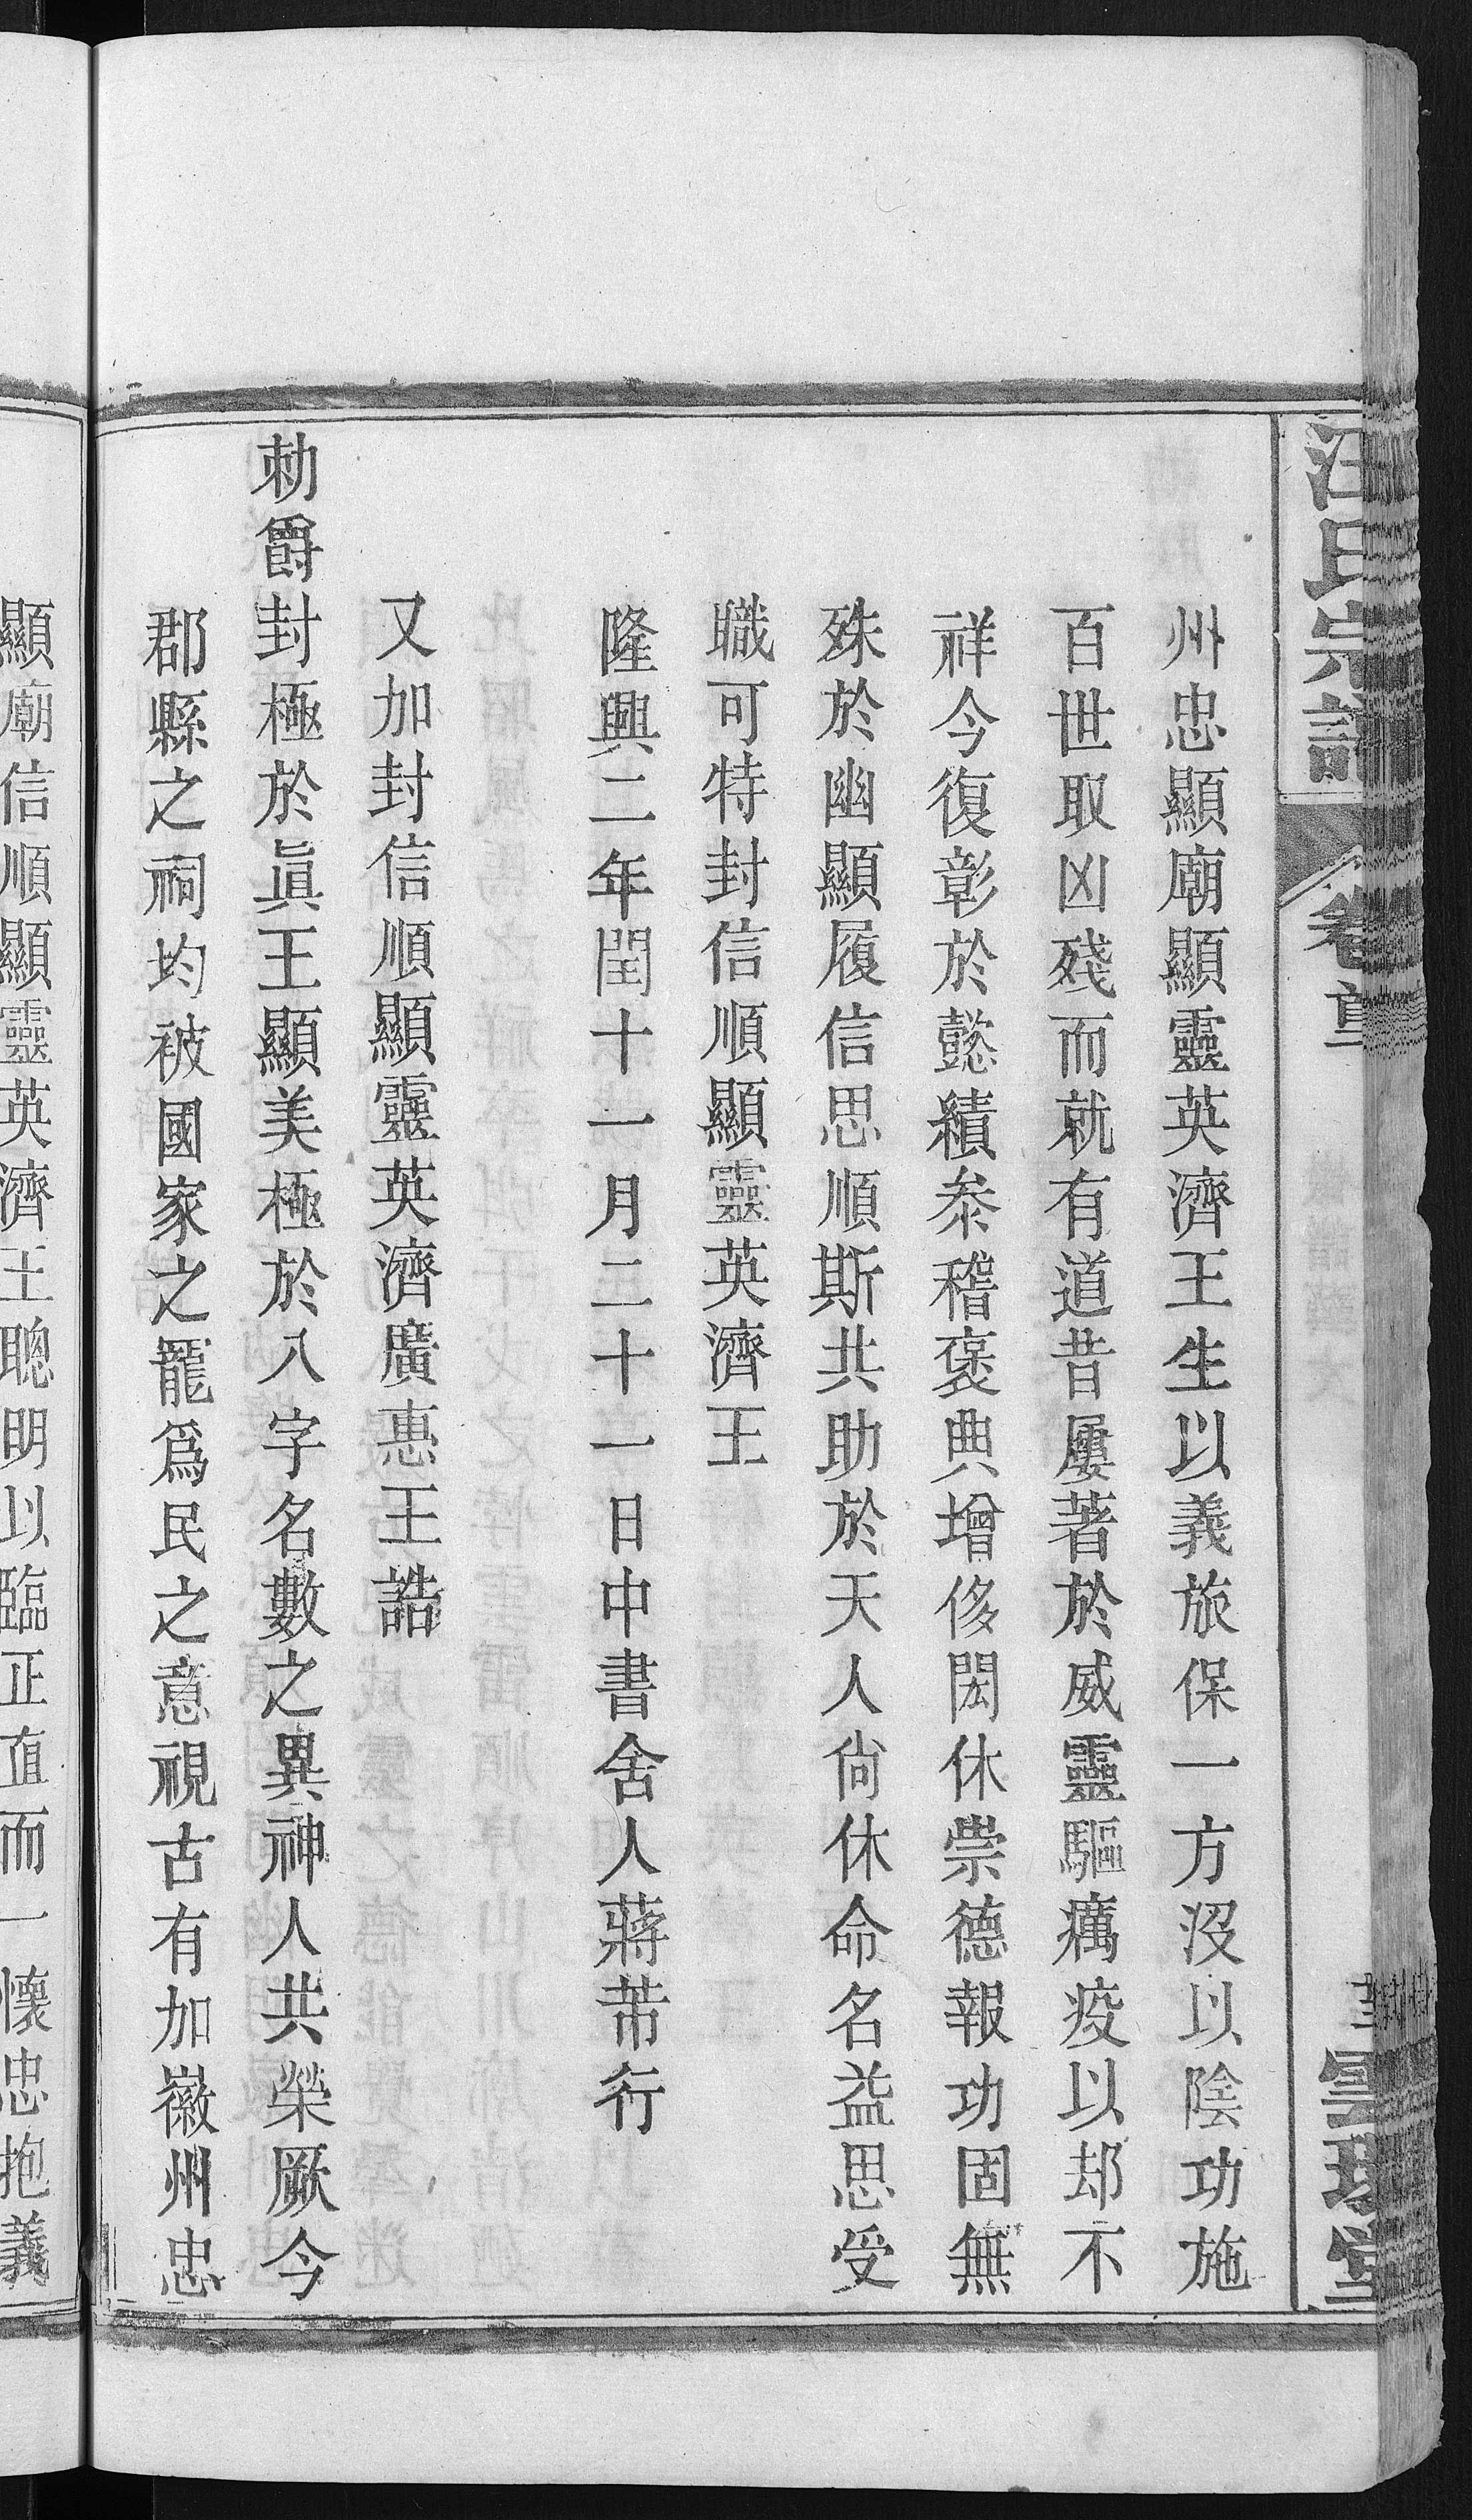 汪氏宗譜
卷首
州忠顯廟顯靈英濟王生以義旅保一方沒以陰功施
百世取凶殘而就有道昔屢著於威靈驅癘疫以却不
祥今復彰於懿績叅稽褒典增侈閎休崇德報功固無
殊於幽顯履信思順斯共助於天人尙休命名益思受
職可特封信順顯靈英濟王
隆興二年閏十一月二十一日中書舍人蔣芾行
又加封信順顯靈英濟廣惠王誥
勑爵封極於眞王顯美極於八字名數之異神人共榮厥今
郡縣之祠均被國家之寵爲民之意視古有加徽州忠
顯廟信順顯靈英濟王聰明以臨正直而一懷忠抱義